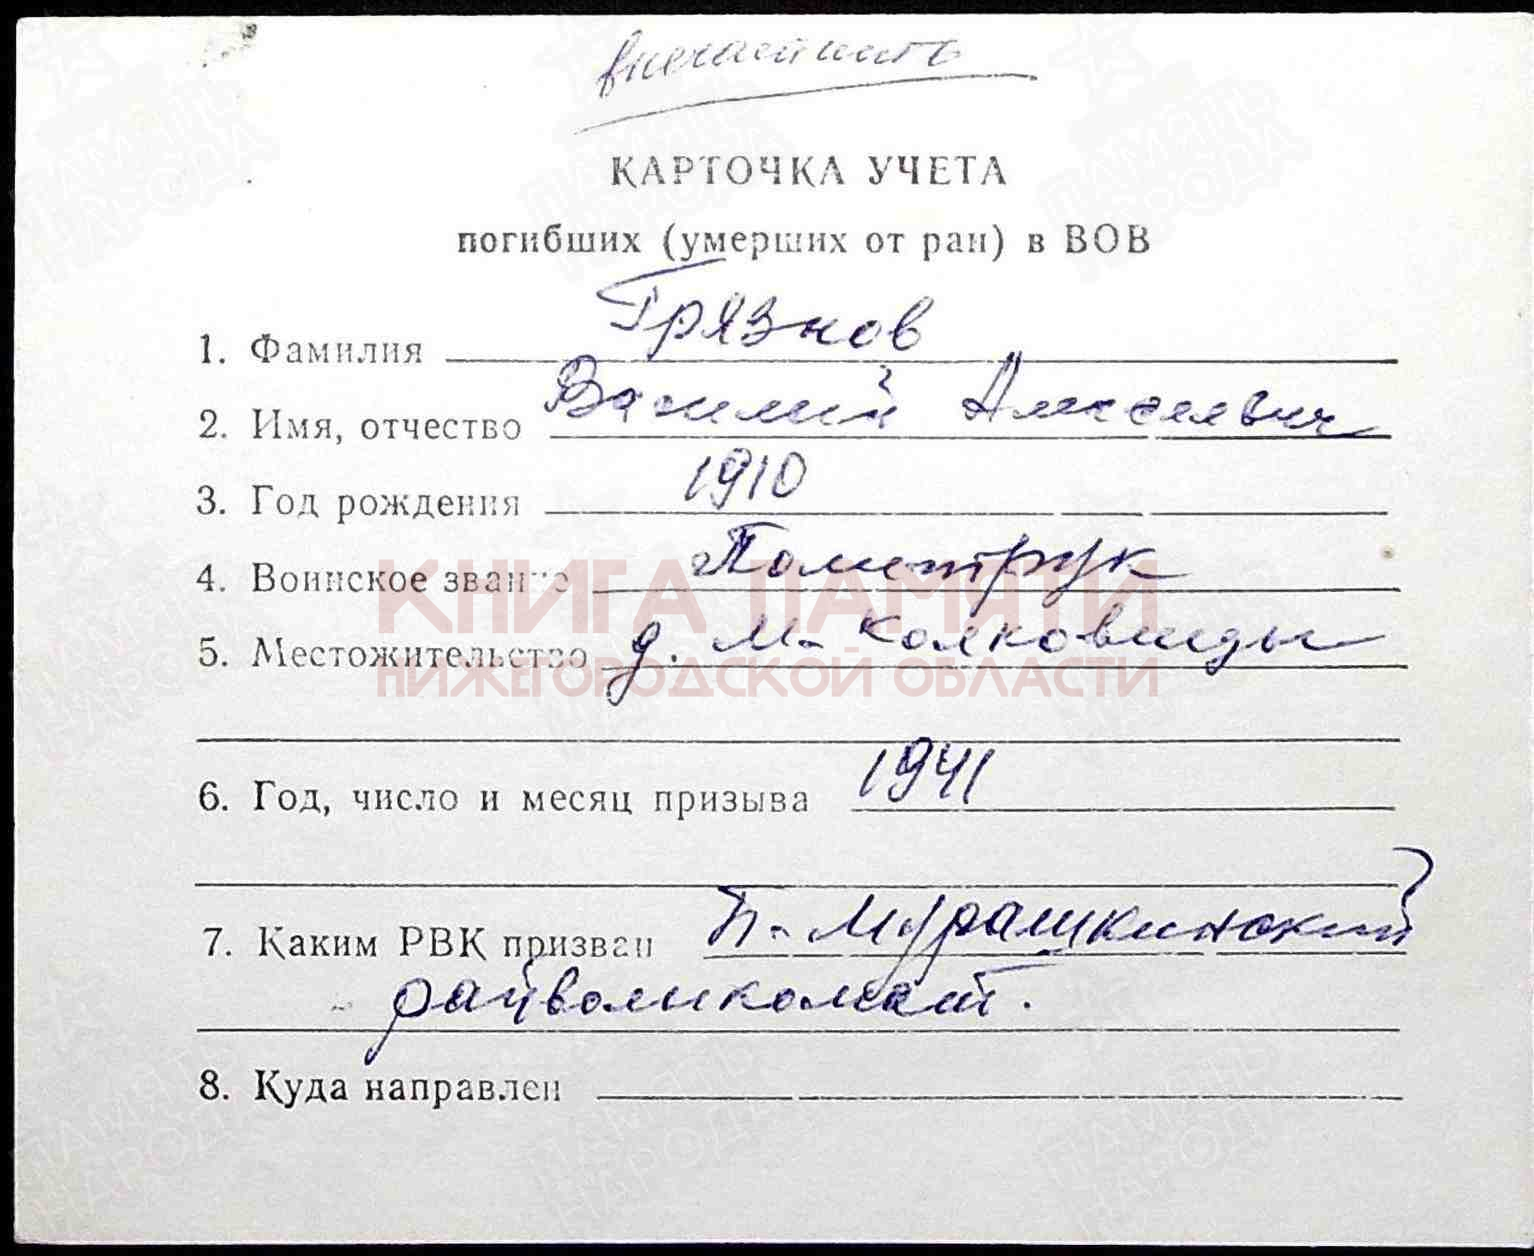 впечатить
КАРТОЧКА УЧЕТА
погибших (умерших от ран) в ВОВ
1. Фамилия Грязнов
2. Имя, отчество Василий Алексеевич
3. Год рождения 1910
4. Воинское звание Политрук
КНИГА ПАМЯТИ
5. Местожительство д. М. Колковицы
НИЖЕГОРОДСКОЙ ОБЛАСТИ
6. Год, число и месяц призыва 1941
7. Каким РВК призван Б. Мурашкинский
райвоенкомат.
8. Куда направлен